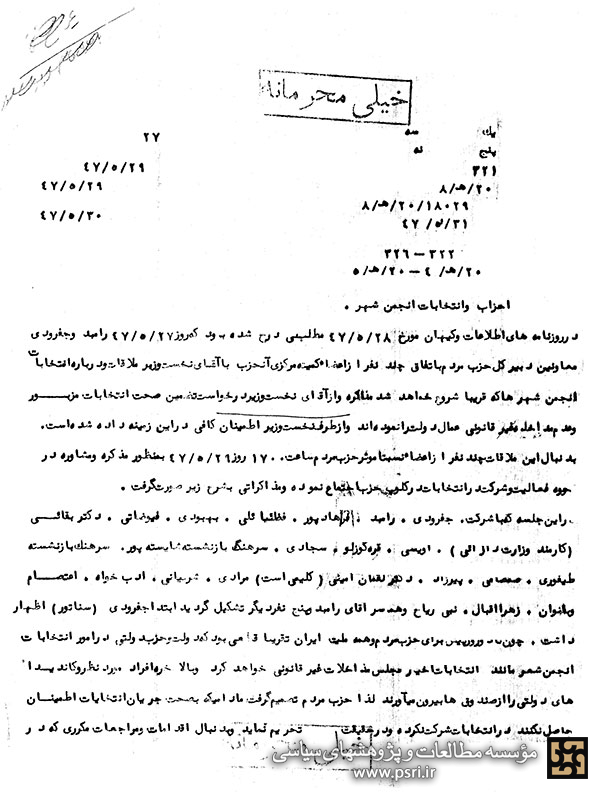 خیلی محرمانه
یك سه ۲۷
پنج نه
۳۲۱ ۴۷/۵/۲۹
۲۰/هـ/۸ ۴۷/۵/۲۹
۸/هـ/۲۰/۱۸۰۲۹
۴۷/۵/۳۱ ۴۷/۵/۳۰
۳۲۲ – ۳۲۶
۲۰/هـ/۴ – ۲۰/هـ/۵
احزاب وانتخابات انجمن شهر .
درروزنامه های اطلاعات وکیهان مورخ ۴۷/۵/۲۸ مطلبی درج شده بود که روز ۴۷/۵/۲۷ رامبد وجفرودی
معاونین دبیرکل حزب مردم باتفاق چند نفر از اعضاء کمیته مرکزی آنحزب باآقای نخست وزیر ملاقات ودرباره انتخابات
انجمن شهرها که قریبا شروع خواهد شد مذاکره وازآقای نخست وزیر درخواست تضمین صحت انتخابات مزبور
وعدم مداخله غیر قانونی عمال دولت رانموده اند وازطرف نخست وزیر اطمینان کافی دراین زمینه داده شده است.
بدنبال این ملاقات چند نفر ازاعضاء نسبتا موثر حزب مردم ساعت ۱۷۰۰ روز ۴۷/۵/۲۹ بمنظور مذکره ومشاوره در
نحوه فعالیت وشرکت درانتخابات درکلوپ حزب اجتماع نموده ومذاکراتی بشرح زیر صورت گرفت .
دراین جلسه که باشرکت . جفرودی . رامبد . فرهادپور . فضائلی . بهبودی . فیوضاتی . دکتر بقائی
(کارمند وزارت دارائی) . اویسی . قره گوزلو . سجادی . سرهنگ بازنشسته شایسته پور . سرهنگ بازنشسته
طیفوری . صمصامی . پیرزاد . دکتر لقمان امینی (کلیمی است) مرادی . شرمینی . ادب خواه . اعتصام
وبانوان . زهرا اقبال . نمی ریاح وهمسر آقای رامبد وپنج نفر دیگر تشکیل گردید ابتدا جفرودی (سناتور) اظهار
داشت . چون برای حزب مردم وهمه ملت ایران تقریبا قطعی بود که دولت وحزب دولتی درامور انتخابات
انجمن شهر مانند انتخابات اخیر مجلس مداخلات غیر قانونی خواهد کرد وبالاخره افراد مورد نظر وکاندیدا
های دولتی را از صندوق هابیرون میآورند لذا حزب مردم تصمیم گرفت مادامیکه بصحت جریان انتخابات اطمینان
حاصل نکند درانتخابات شرکت نکرده ودرحقیقت تحریم نماید وبدنبال اقدامات ومراجعات مکرری که در
خیلی
مؤسسه مطالعات و پژوهشهای سیاسی
www.psri.ir